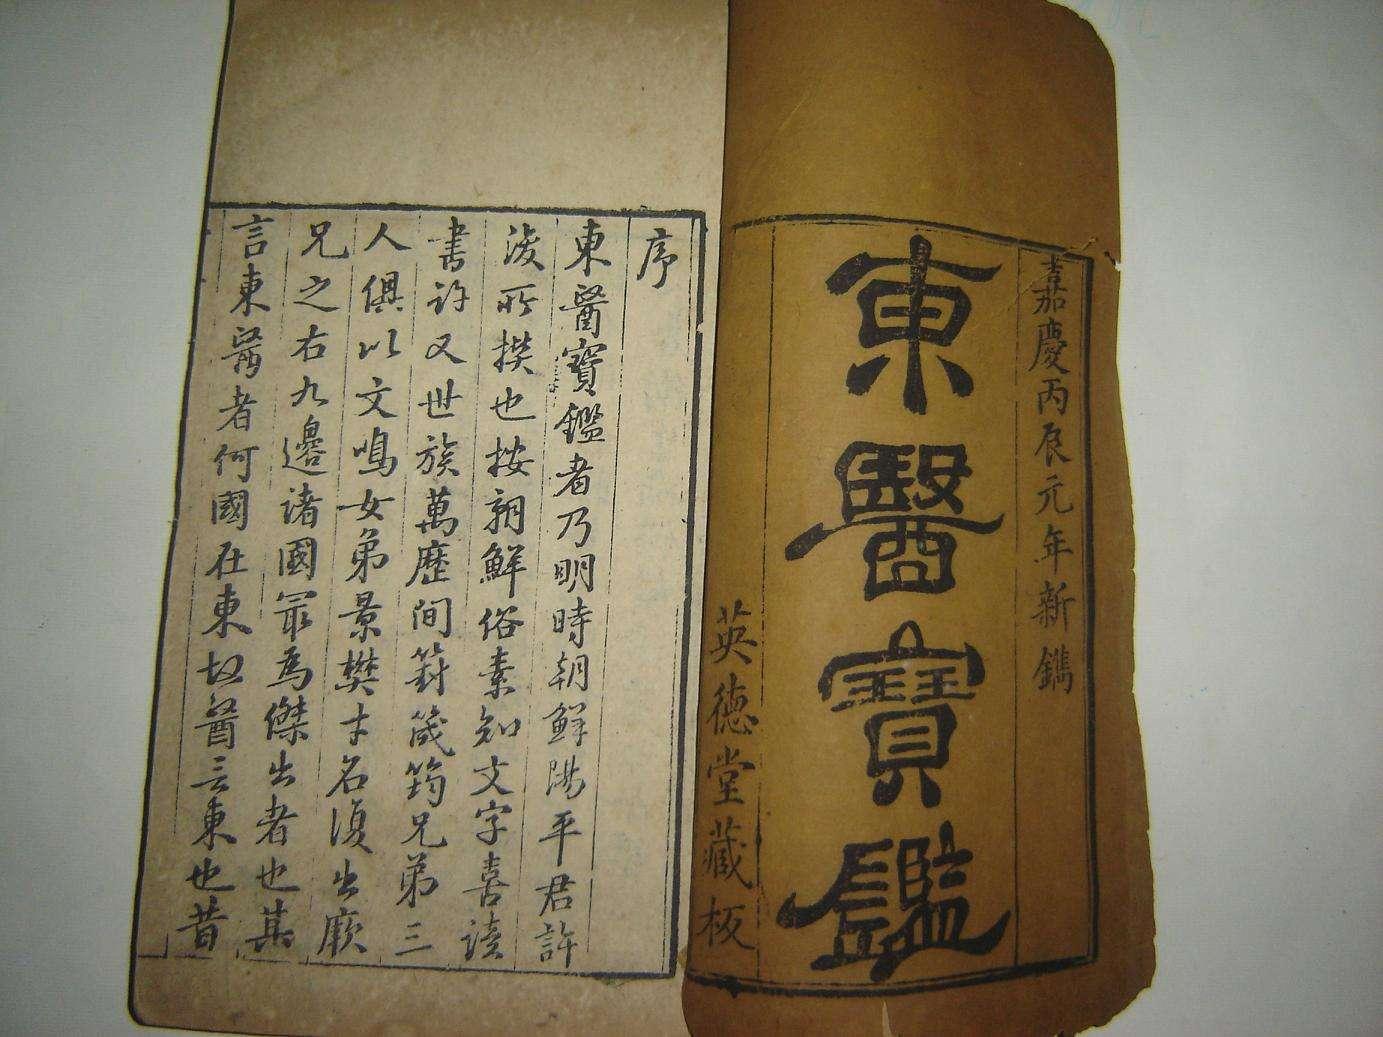 嘉慶丙辰元年新鐫
東醫寶鑑
英德堂藏板
序
東醫寶鑑者乃明時朝鮮陽平君許
浚所撰也按朝鮮俗素知文字喜读
書許又世族萬歷间篈筬筠兄弟三
人俱以文鳴女弟景樊才名復出厥
兄之右九邊诸國最為傑出者也其
言東醫者何國在東故醫言東也昔